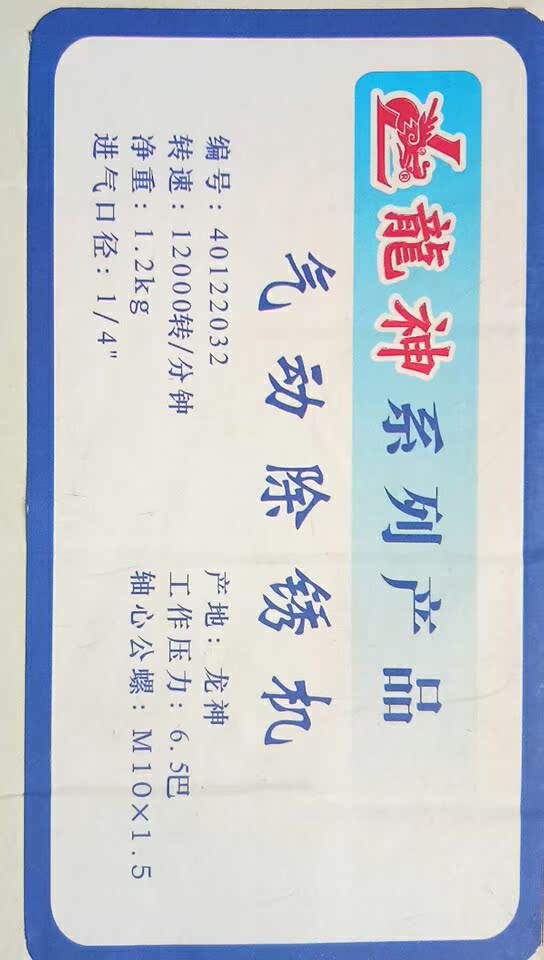 龍神系列产品
气动除锈机
编号：40122032
转速：12000转/分钟
净重：1.2kg
进气口径：1/4"
产地：龙神
工作压力：6.5巴
轴心公螺：M10×1.5